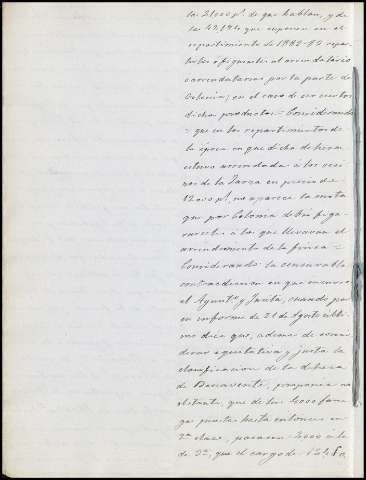 las 21000 ps. de que hablan, y de
las 43,174 que suponen en el
repartimiento de 1882-83 repar
tibles a figurantes al arrendatario
o arrendatarios por la parte de
en el caso de ser ciertos
dichos productos = Considerando
= que en los repartimientos de
la época en que dicha dehesa
estuvo arrendada à los veci
nos de la Zarza en precio de
12000 ps. no aparece la cuota
que por Colonia debió figu
rarsele à los que llevaron el
arrendamiento de la finca =
Considerando la censurable
contradiccion en que incurre
el Ayuntº. y Junta, cuando por
su informe de 21 de Agosto ulti
mo dice que, ademas de consi
derar equitativa y justa la
clasificacion de la dehesa
de Benavente, proponia no
obstante, que de las 4000 fane
gas puestas hasta entonces en
2ª clase, pasaran 2000 à la
de 3ª, que el cargo de